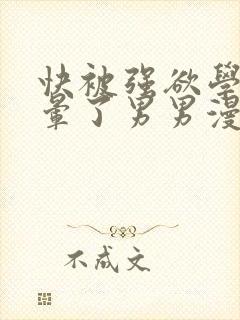 快被强欲學
暈了男男漫
不成文